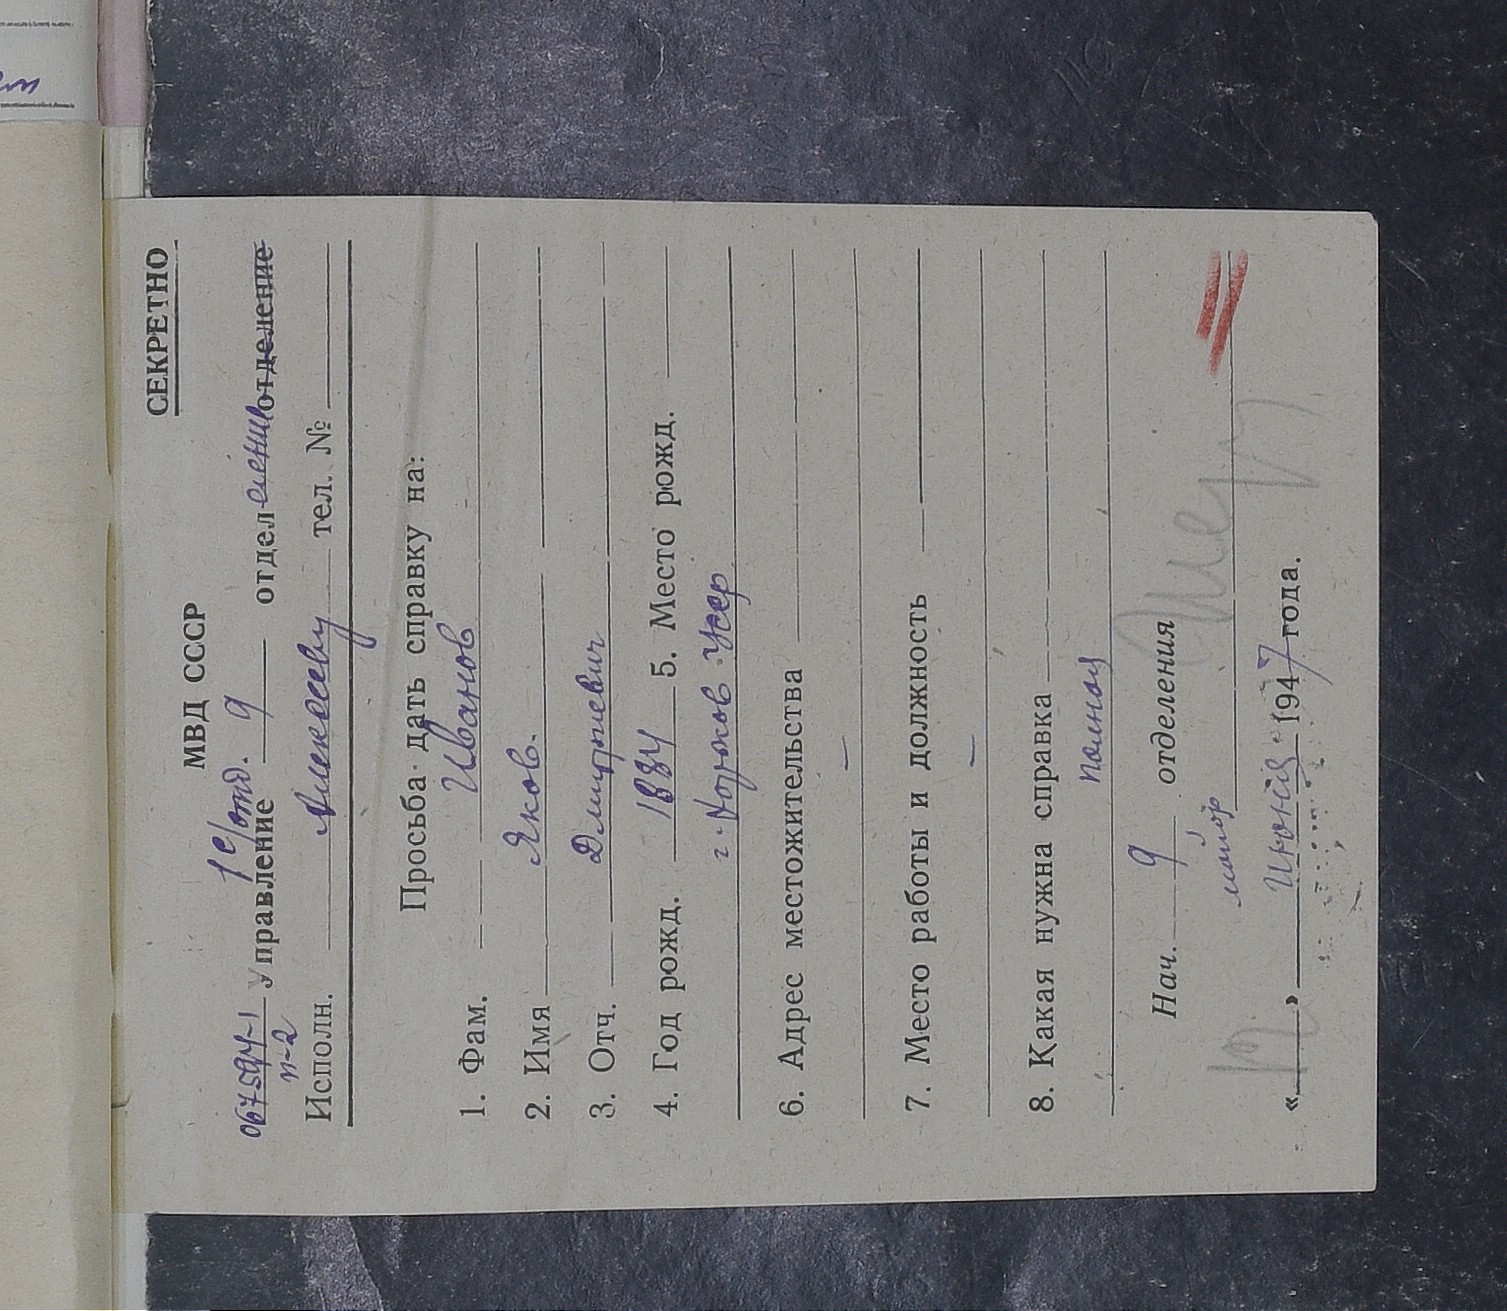 СЕКРЕТНО
МВД СССР
1 с/отд.
Управление 9 отделение отделение
067594-1
п-2
Исполн. Алексееву тел. №
Просьба дать справку на:
1. Фам. Иванов
2. Имя Яков.
3. Отч. Дмитриевич
4. Год рожд. 1884 5. Место рожд.
г.
6. Адрес местожительства
—
7. Место работы и должность
—
8. Какая нужна справка
полная
Нач. 9 отделения
майор
« » Июня 1947 года.